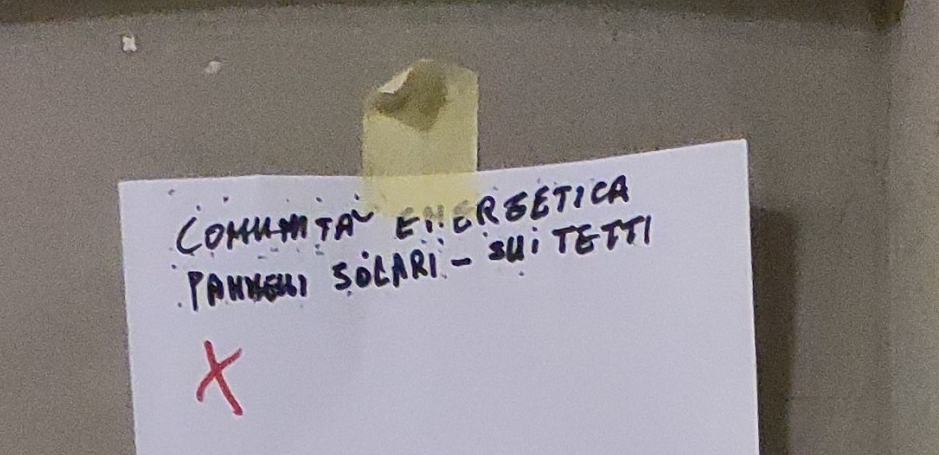 COMUNITA' ENERGETICA
PANNELLI SOLARI - SUi TETTI
X